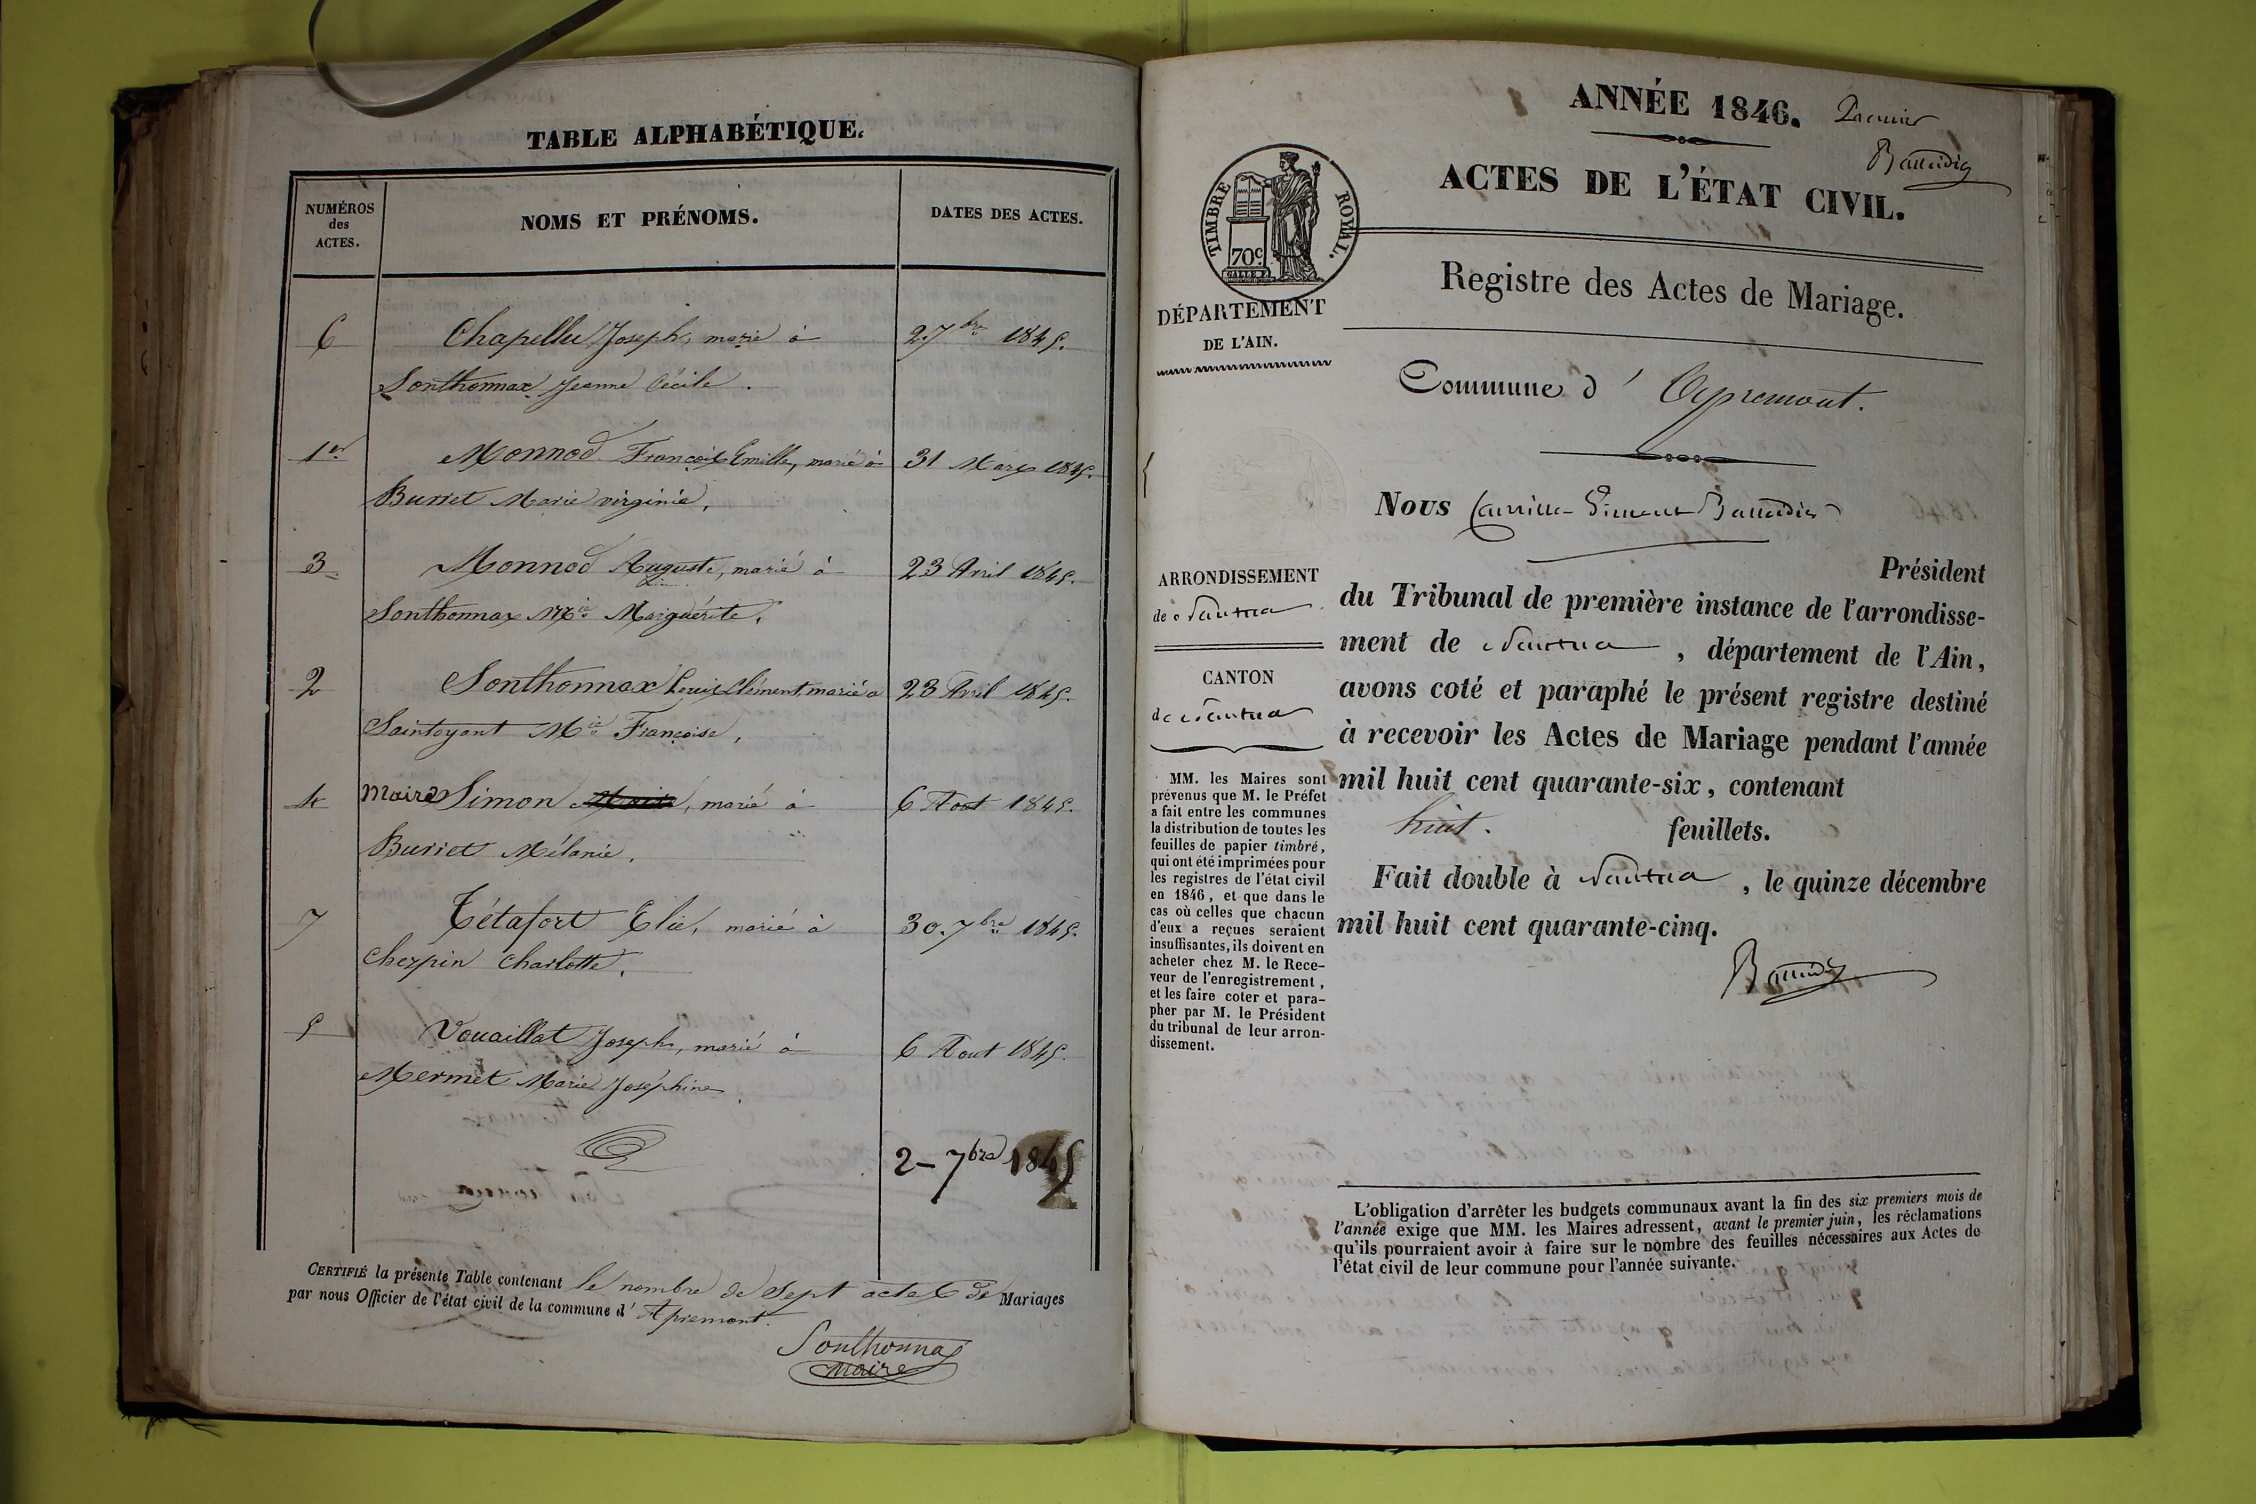 TABLE ALPHABÉTIQUE.
NUMÉROS
des
ACTES.
NOMS ET PRÉNOMS.
DATES DES ACTES.
6 Chapellu Joseph, marié à 2 7bre 1845.
Sonthonnax Jeanne Cécile.
1er Monnod François Emille, marié à 31 Mars 1845.
Burret Marie virginie.
3 Monnod Auguste, marié à 23 Avril 1845.
Sonthonnax Mie Marguérite.
2 Sonthonnax Louis Clément marié à 23 Avril 1845.
Saintoyant Mie Françoise.
4 Maire Simon, marié à 6 Aoat 1845.
Burret Mélanie.
7 Tétafort Elie, marié à 30. 7bre 1845.
Cherpin Charlotte.
5 Vouaillat Joseph, marié à 6 Aout 1845.
Mermet Marie Joséphine
2 - 7bre 1845
CERTIFIÉ la présente Table contenant le nombre de Sept actes de Mariages
par nous Officier de l'état civil de la commune d' Apremont.
Sonthonnax
Maire
ANNÉE 1846. Premier
ACTES DE L'ÉTAT CIVIL.
TIMBRE ROYAL.
70c.
Registre des Actes de Mariage.
DÉPARTEMENT
DE L'AIN.
Commune d' Apremont.
Nous Camille
Président
ARRONDISSEMENT
de Nantua
CANTON
de Nantua
du Tribunal de première instance de l'arrondisse-
ment de Nantua, département de l'Ain,
avons coté et paraphé le présent registre destiné
à recevoir les Actes de Mariage pendant l'année
mil huit cent quarante-six, contenant
huit. feuillets.
Fait double à Nantua, le quinze décembre
mil huit cent quarante-cinq.
MM. les Maires sont
prévenus que M. le Préfet
a fait entre les communes
la distribution de toutes les
feuilles de papier timbré,
qui ont été imprimées pour
les registres de l'état civil
en 1846, et que dans le
cas où celles que chacun
d'eux a reçues seraient
insuffisantes, ils doivent en
acheter chez M. le Rece-
veur de l'enregistrement,
et les faire coter et para-
pher par M. le Président
du tribunal de leur arron-
dissement.
L'obligation d'arrêter les budgets communaux avant la fin des six premiers mois de
l'année exige que MM. les Maires adressent, avant le premier juin, les réclamations
qu'ils pourraient avoir à faire sur le nombre des feuilles nécessaires aux Actes de
l'état civil de leur commune pour l'année suivante.